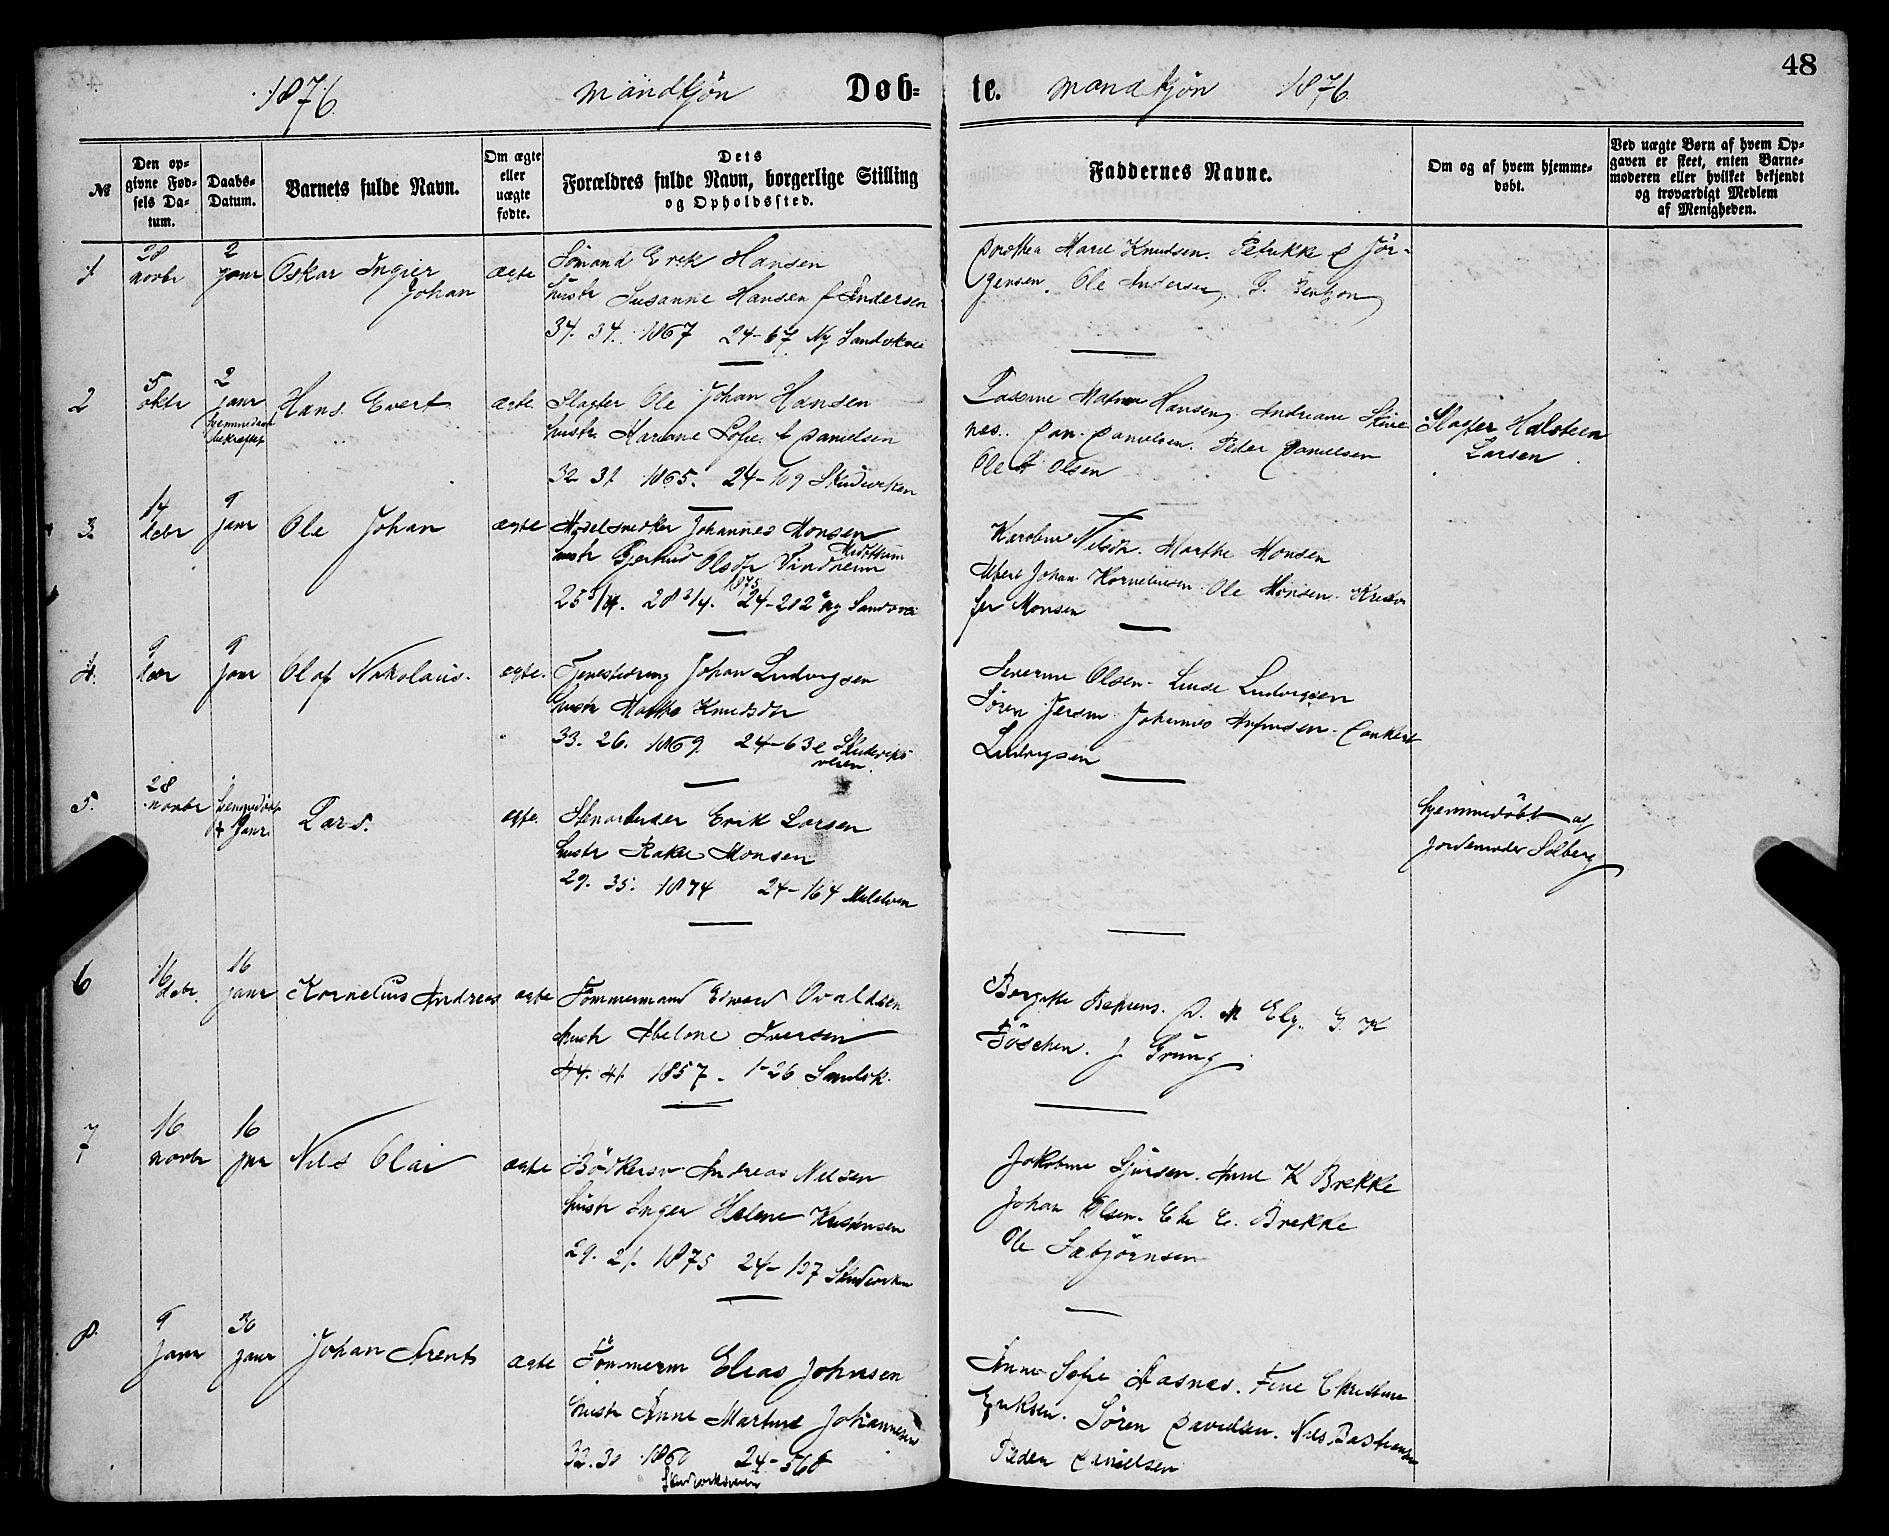 48
1876. Mandkjön Døb= te. Mandkjön 1876.
№
Den op=
givne Fød=
sels Da=
tum.
Daabs=
Datum.
Barnets fulde Navn.
Om ægte
eller
uægte
fødte.
Dets
Forældres fulde Navn, borgerlige Stilling
og Opholdssted.
Faddernes Navne.
Om og af hvem hjemme=
døbt.
Ved uægte Børn af hvem Op=
gaven er skeet, enten Barne=
moderen eller hvilket bekjendt
og troværdigt Medlem
af Menigheden.
1
28
novbr
2
janr
Oskar Ingier
Johan
ægte
Sömand Erik Hansen
hustr Susanne Hansen f Andersen
34. 34. 1867 24-67 Ny Sandvkvei
Dorothea Marie Knudsen. Petrikke Jör-
gensen. Ole Andersen. Bentzon
2
5
oktbr
2
janr
Hans Evert
ægte
Slagter Ole Johan Hansen
hustr Mariane Sofie f Danielsen
32 31 1865. 24-109 Skudeviken
Hansen. Andreane
nes. Dan. Danielsen. Peder Danielsen
Ole Olsen
Slagter Halsteen
Larsen
3
14
debr
9
janr
Ole Johan
ægte
Johannes Monsen
hustr Gjertrud Olsdr Vindheim
25 3/4. 28 3/4. 1875 24-202 Ny Sandvvei
Karoline Nilsdr. Marthe Monsen
Johan Korneliusen. Ole Monsen. Kristo
fer Monsen
4.
9
9
janr
Olaf Nikolaus.
ægte.
Tjenestedreng Johan Ludvigsen
hustr Marthe Knudsdr
33. 26. 1869 24-63e Skudeviks
veien.
Severine Olsen. Ludvigsen
Sören Johannes
Ludvigsen
5.
28
novbr
hjemmedöbt
Janr.
Lars.
ægte.
Stenarbeider Erik Larsen
hustr Rakel Monsen
29. 35. 1874 24-164
hjemmedöbt af
jordemoder Solberg
6
16
debr.
16
janr
Kornelius Andreas
ægte
Tömmermand Edvard Ovaldsen
hustr Abelone Iversen
44. 41 1857. 1-26 Sandvk.
Bergitte Behrens. M Ely. G. K
Böschen. J Grung
7
16
novbr
16
jnr
Nils Olai
ægte
Bödkersv Andreas Nilsen
hustr Inger Helene
29. 21. 1875 24-137 Skudeviken
Jakobine Sjursen. Anne K Brekke
Johan Olsen. E. Brekke
Ole Sæbjörnsen
8
9
janr
30
janr
Johan Arent
ægte
Tömmerm Elias Johnsen
hustr Anne Martine Johannesen
32. 30 1860 24-560
Anne Sofie Aasnæs. Fine Christine
Eriksen. Sören Davidsen. Nils Bastiansen
Peder Danielsen